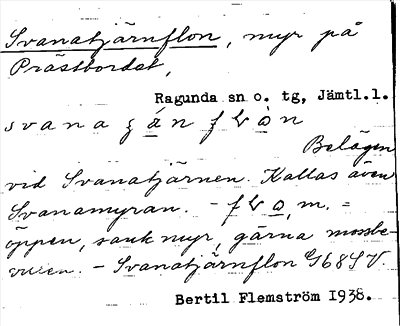 Svanatjärnflon, myr på
Prästbordet,
Ragunda sn o. tg, Jämtl.l.
svana ȥän flòn
Belägen
vid Svanatjärnen. Kallas även
Svanamyran. - flo, m. =
öppen, sank myr, gärna mossbe-
vuxen. - Svanatjärnflon G68SV.
Bertil Flemström 1938.